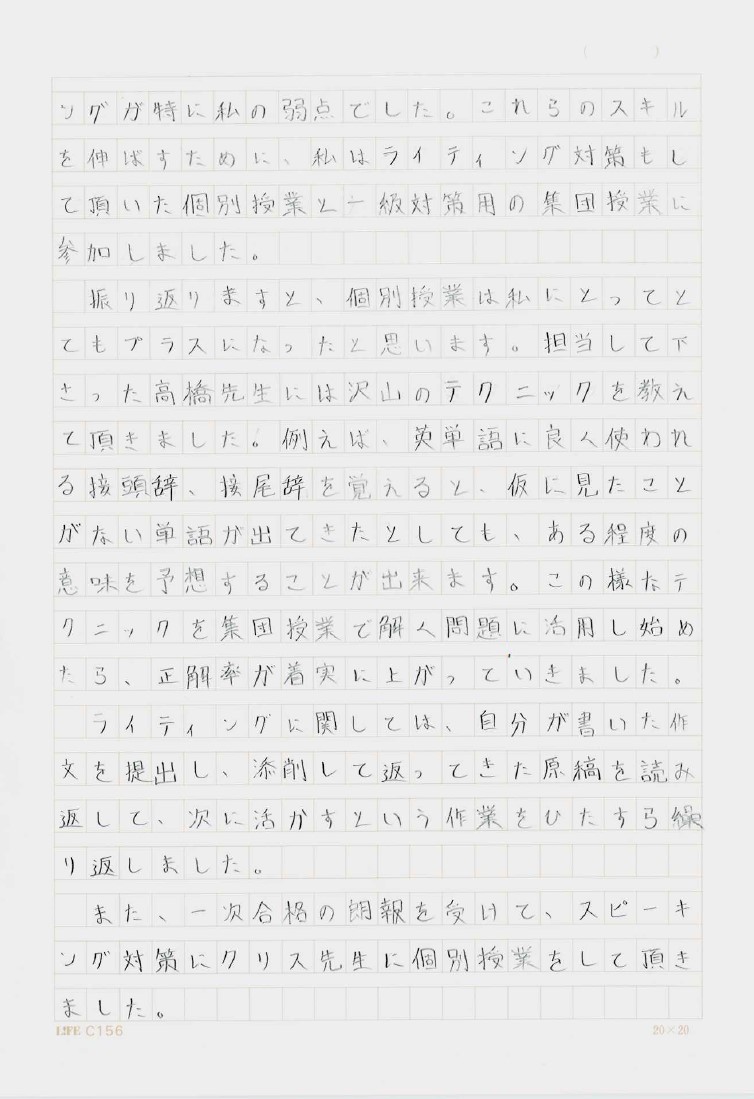 (　　　)
ングが特に私の弱点でした。これらのスキル
を伸ばすために、私はライティング対策もし
て頂いた個別授業と一級対策用の集団授業に
参加しました。
振り返りますと、個別授業は私にとってと
てもプラスになったと思います。担当して下
さった高橋先生には沢山のテクニックを教え
て頂きました。例えば、英単語に良く使われ
る接頭辞、接尾辞を覚えると、仮に見たこと
がない単語が出てきたとしても、ある程度の
意味を予想することが出来ます。この様なテ
クニックを集団授業で解く問題に活用し始め
たら、正解率が着実に上がっていきました。
ライティングに関しては、自分が書いた作
文を提出し、添削して返ってきた原稿を読み
返して、次に活かすという作業をひたすら繰
り返しました。
また、一次合格の朗報を受けて、スピーキ
ング対策にクリス先生に個別授業をして頂き
ました。
LIFE C156
20×20